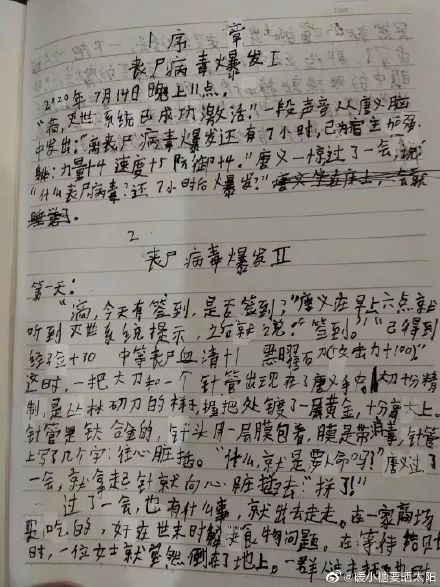 1 序章
丧尸病毒爆发I
2020年7月14日晚上11点,
"滴,灭世系统已成功激活。"一段声音从唐义脑
中发出:"离丧尸病毒爆发还有7小时,已为宿主加强
躯:力量+4 速度+5 防御+4。"唐义一惊过了一会,说:
"什么丧尸病毒?还7小时后爆发?"
2
丧尸病毒爆发II
第一天:
"滴,今天有签到,是否签到?"唐义在早上六点就
听到灭世系统提示,立刻就说:"签到。""已得到
经验+30 中等丧尸血清+1 恶曜石刀(攻击力+100)"
这时,一把大刀和一个针管出现在了唐义手中。大刀十分精
制,是丛林砍刀的样子,握把处镀了一层黄金,十分高大上。
针管是钛合金的,针头用一层膜包着,膜是带消毒,针管
上写了几个字:往心脏插。"什么,就是要人命吗?"唐义过了
一会,就拿起针就向心脏插去"拼了!"
过了一会,也有什么事,就出去走走。在一家商场
买吃的,好在世末时解决食物问题。在等待结账
时,一位女士就突然倒在了地上。一群人
@缓小植要晒太阳